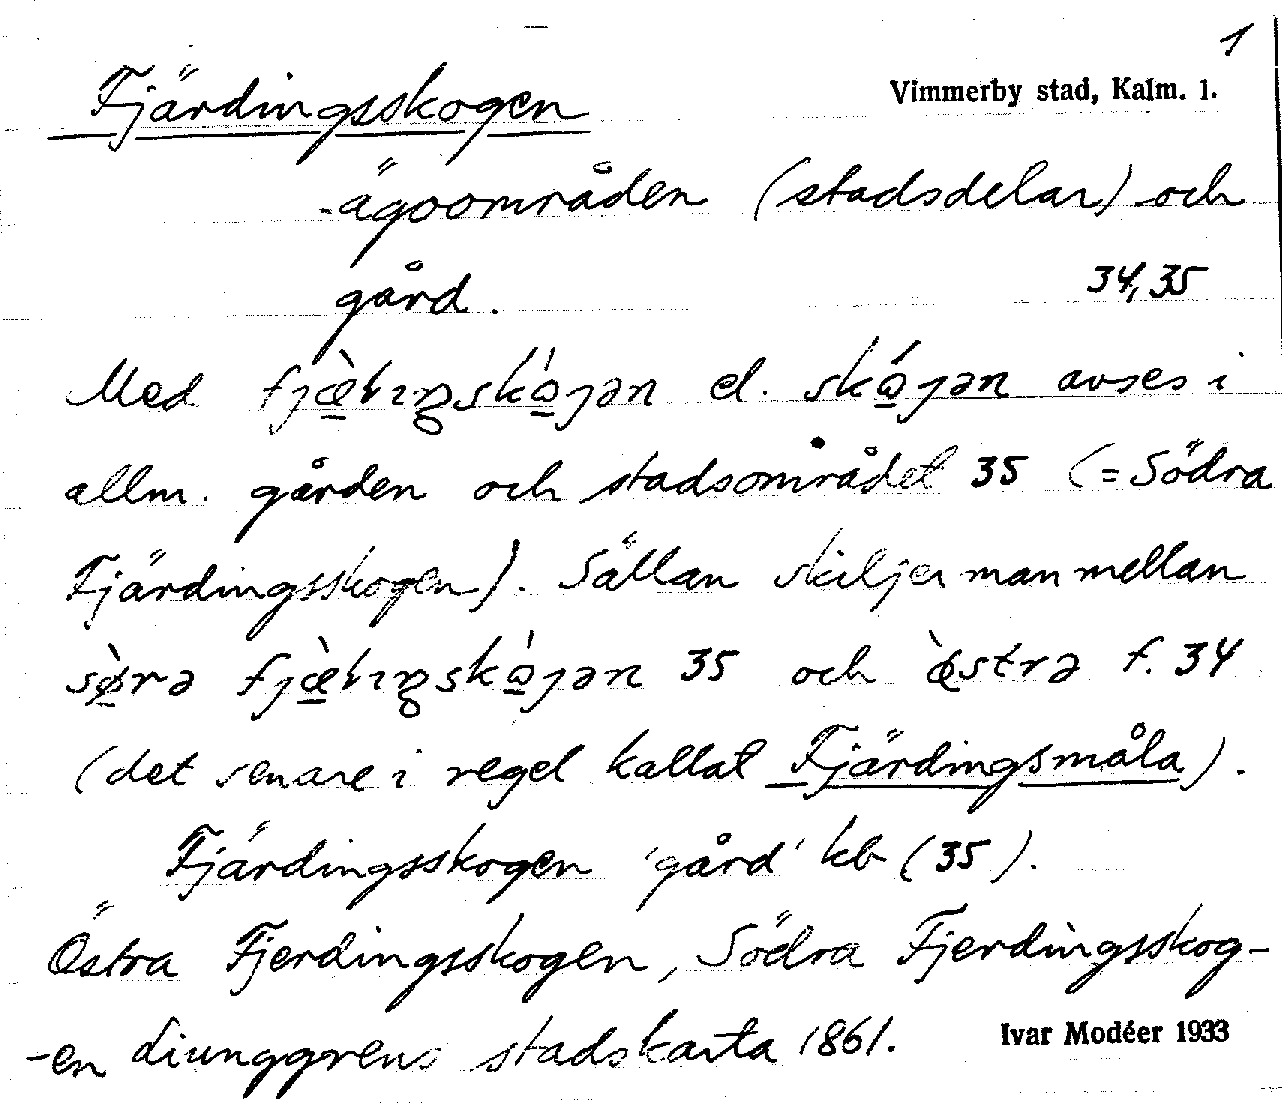 1
Fjärdingsskogen
Vimmerby stad, Kalm. l.
ägoområden (stadsdelar) och
gård. 34, 35
Med el. avses i
allm. gården och stadsområdet 35 (= Södra
Fjärdingsskogen). Sällan skiljer man mellan
35 och f. 34
(det senare i regel kallat Fjärdingsmåla).
Fjärdingsskogen 'gård' kb (35).
Östra Fjerdingsskogen, Södra Fjerdingsskog-
-en Ljunggrens stadskarta 1861.
Ivar Modéer 1933